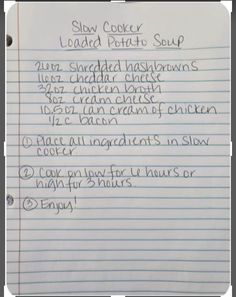 Slow Cooker
Loaded Potato Soup
20oz shredded hashbrowns
16oz cheddar cheese
32oz chicken broth
8oz cream cheese
10.5oz can cream of chicken
1/2c bacon
① Place all ingredients in slow
cooker
② Cook on low for 6 hours or
high for 3 hours
③ Enjoy!